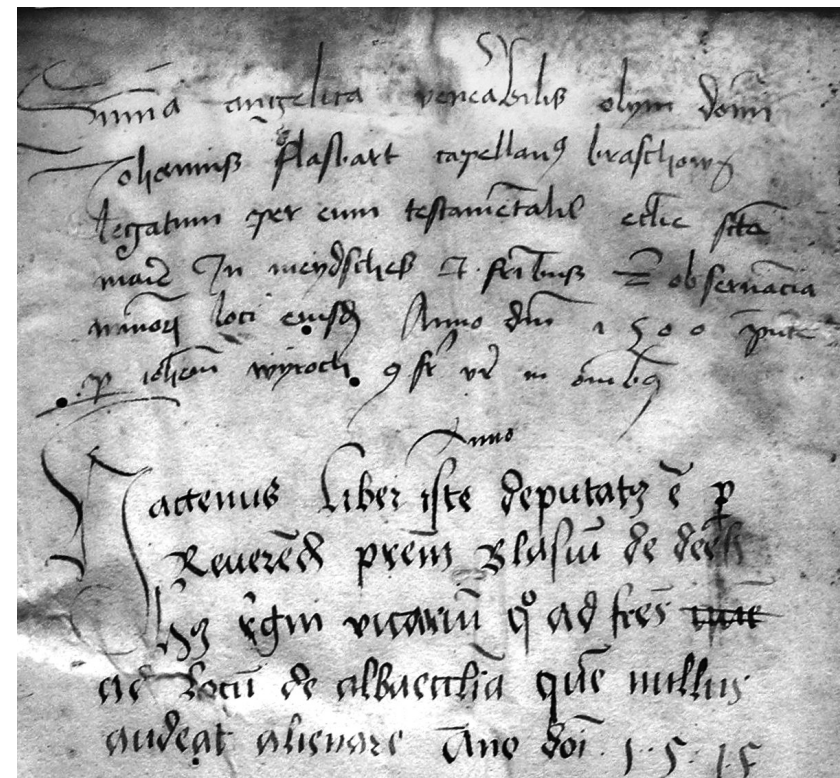 Summa angelica venerabilis olym domi
Johannis flasbart capellani braschow
legatum per eum testametalil ecclie scta
marie In meydsches Et fribus observacia
minorum loci eiusd Anno dm 1500 pnte
p ioheem wyroch fr in omibus
Anno
Hactenus liber iste deputatz e p
Reverend prem Blasiu de dees
hz rgni vicariu qo ad fres
ad locu de albaecclia que nullus
audeat alienare Ano doi 1.5.15